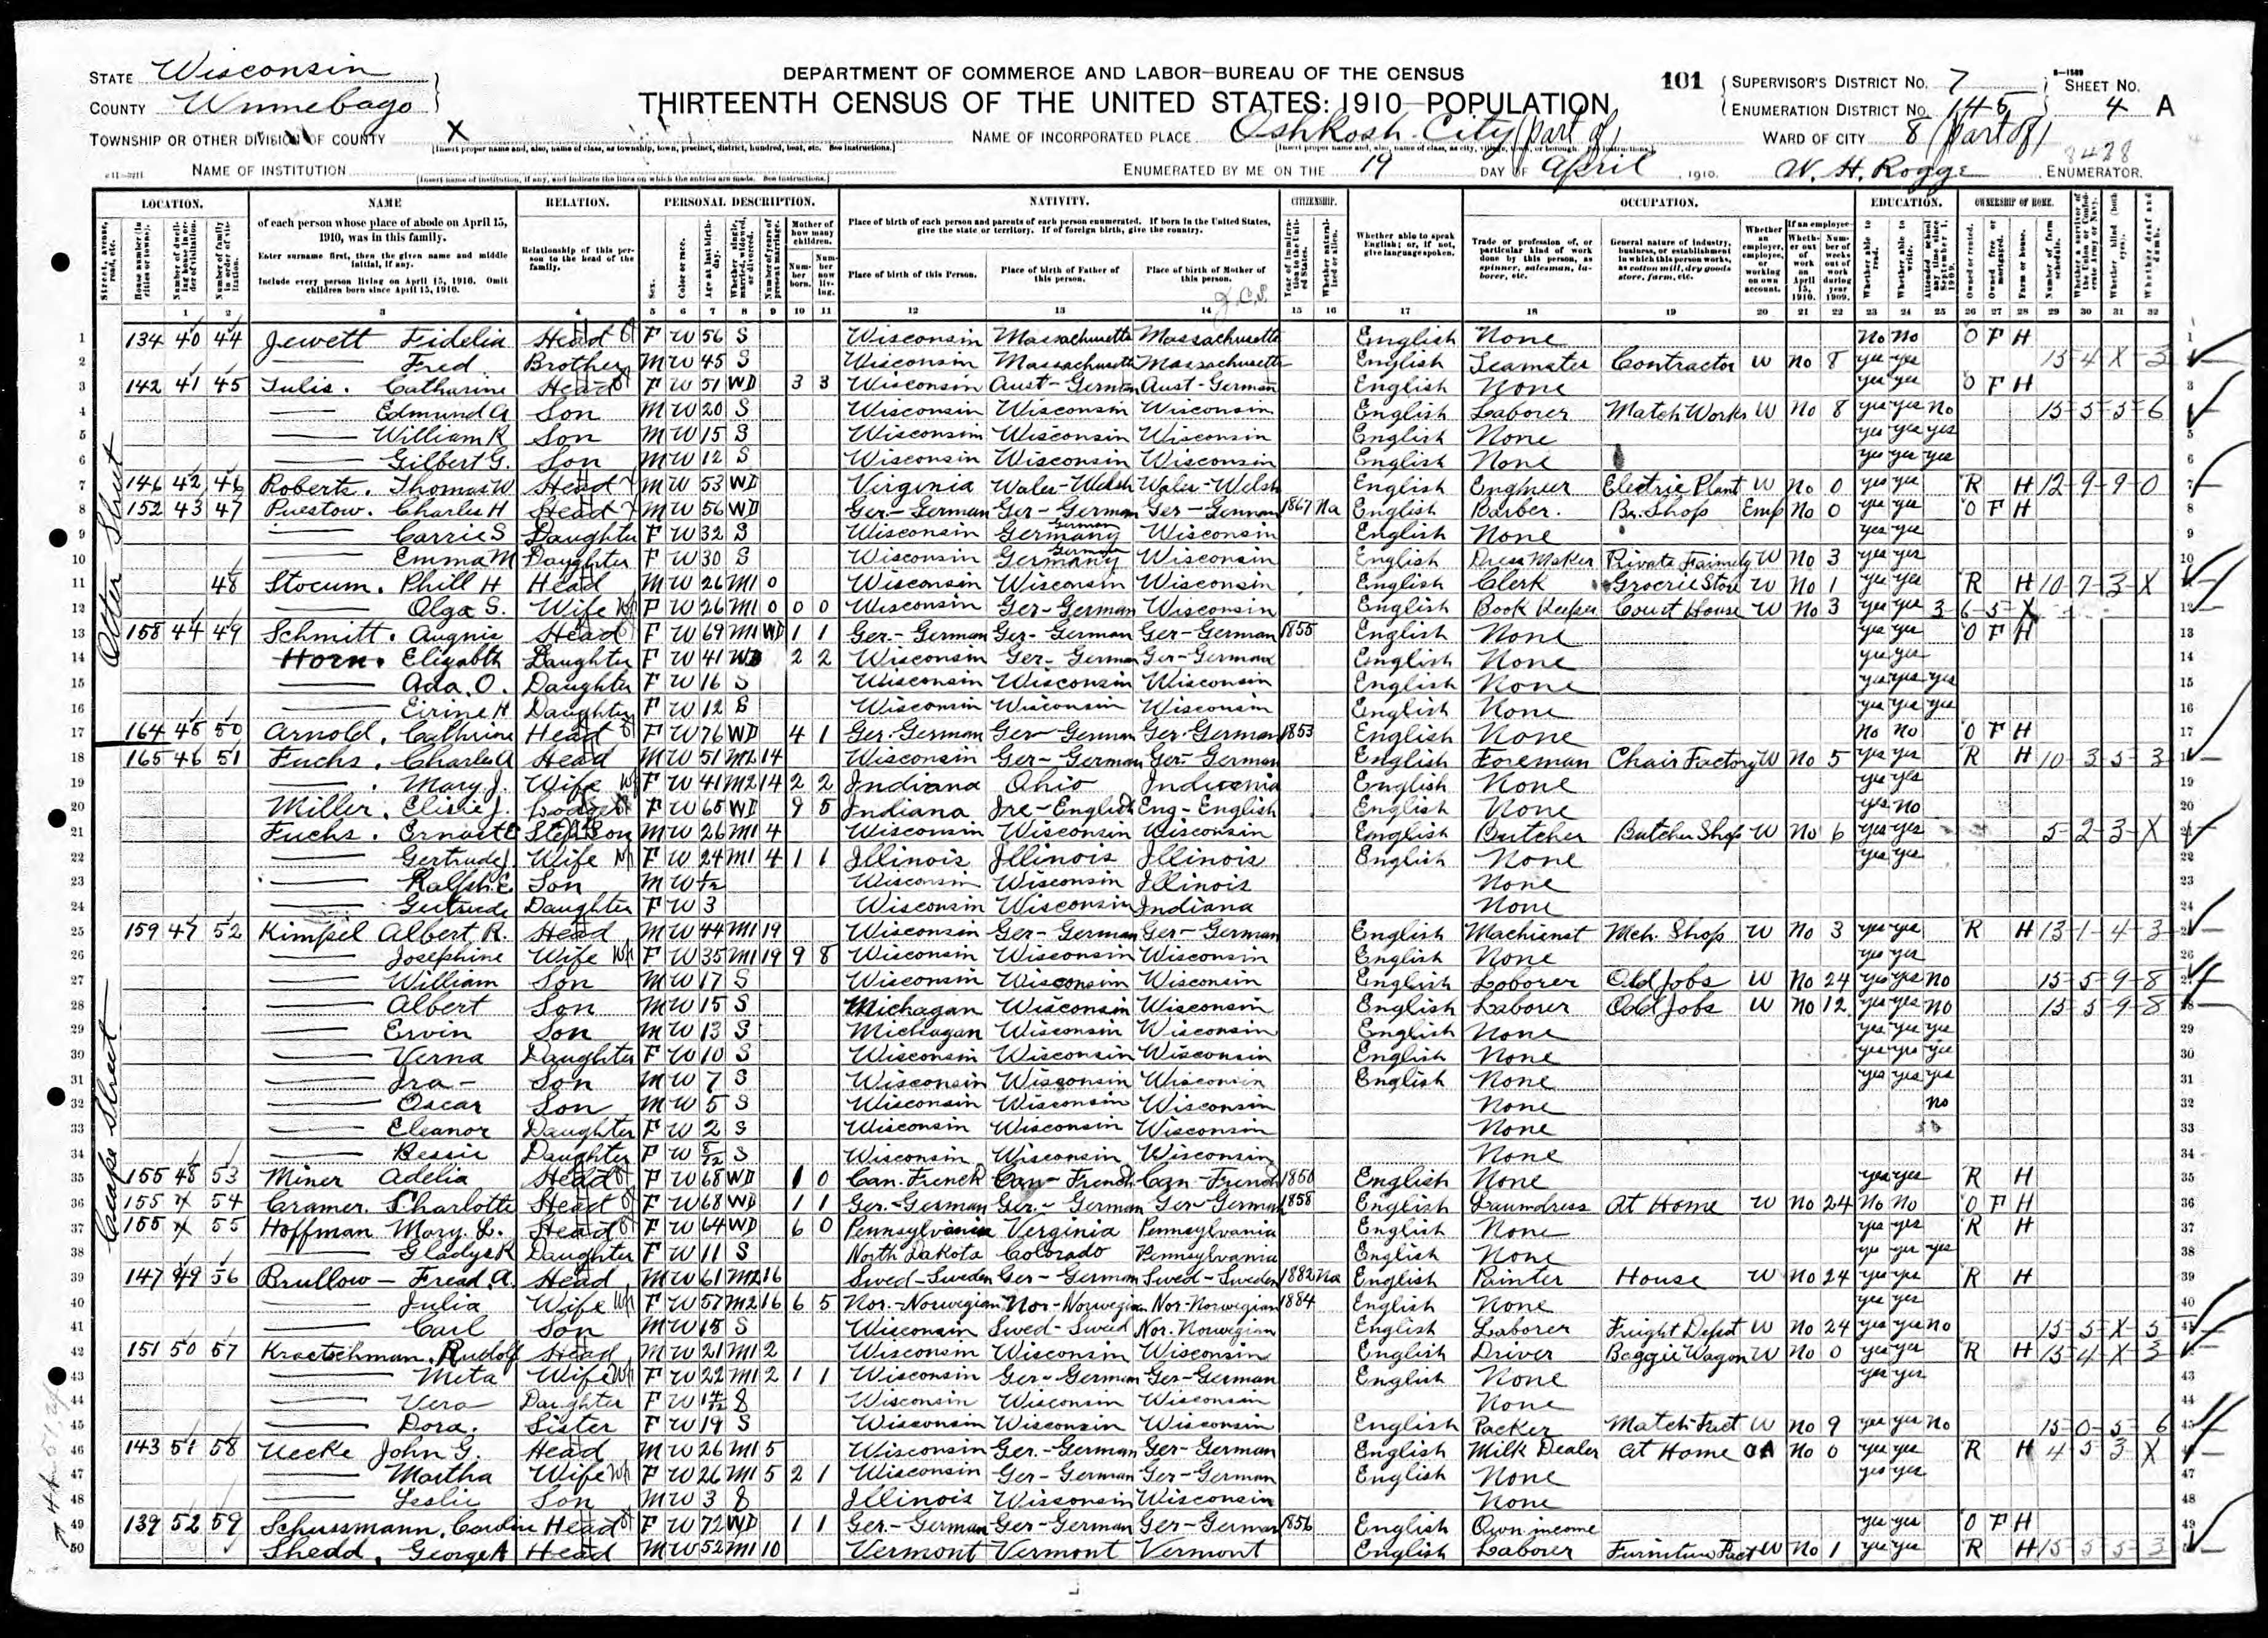 STATE Wisconsin
COUNTY Winnebago
TOWNSHIP OR OTHER DIVISION OF COUNTY X
[Insert proper name and, also, name of class, as township, town, precinct, district, hundred, beat, etc. See instructions.]
NAME OF INSTITUTION
[Insert name of institution, if any, and indicate the lines on which the entries are made. See instructions.]
DEPARTMENT OF COMMERCE AND LABOR—BUREAU OF THE CENSUS
THIRTEENTH CENSUS OF THE UNITED STATES: 1910—POPULATION
NAME OF INCORPORATED PLACE Oshkosh City (part of)
ENUMERATED BY ME ON THE 19 DAY OF April, 1910.
101 SUPERVISOR'S DISTRICT No. 7 SHEET No.
ENUMERATION DISTRICT No. 145 4 A
WARD OF CITY 8 (part of)
8428
W. H. Rogge ENUMERATOR.
LOCATION. NAME RELATION. PERSONAL DESCRIPTION. NATIVITY. CITIZENSHIP. OCCUPATION. EDUCATION. OWNERSHIP OF HOME.
of each person whose place of abode on April 15, 1910, was in this family.
Enter surname first, then the given name and middle initial, if any.
Include every person living on April 15, 1910. Omit children born since April 15, 1910.
Relationship of this person to the head of the family.
Place of birth of each person and parents of each person enumerated. If born in the United States, give the state or territory. If of foreign birth, give the country.
Place of birth of this Person. Place of birth of Father of this person. Place of birth of Mother of this person.
Whether able to speak English; or, if not, give language spoken.
Trade or profession of, or particular kind of work done by this person, as spinner, salesman, laborer, etc.
General nature of industry, business, or establishment in which this person works, as cotton mill, dry goods store, farm, etc.
Otter Street
1 134 40 44 Jewett Fidelia Head F W 56 S Wisconsin Massachusetts Massachusetts English None No No O F H
2 Fred Brother M W 45 S Wisconsin Massachusetts Massachusetts English Teamster Contractor W No 8 yes yes 15-4-X-3
3 142 41 45 Tulis. Catharine Head F W 51 WD 3 3 Wisconsin Aust-German Aust-German English None yes yes O F H
4 Edmund A Son M W 20 S Wisconsin Wisconsin Wisconsin English Laborer Match Works W No 8 yes yes No 15-5-5-6
5 William R Son M W 15 S Wisconsin Wisconsin Wisconsin English None yes yes yes
6 Gilbert G. Son M W 12 S Wisconsin Wisconsin Wisconsin English None yes yes yes
7 146 42 46 Roberts. Thomas W Head M W 53 WD Virginia Wales-Welsh Wales-Welsh English Engineer Electric Plant W No 0 yes yes R H 12-9-9-0
8 152 43 47 Puestow. Charles H Head M W 56 WD Ger-German Ger-German Ger-German 1867 Na English Barber. Br. Shop Emp No 0 yes yes O F H
9 Carrie S Daughter F W 32 S Wisconsin Germany German Wisconsin English None yes yes
10 Emma M Daughter F W 30 S Wisconsin Germany German Wisconsin English Dress Maker Private Faimely W No 3 yes yes
11 48 Stocum. Phill H Head M W 26 M1 0 Wisconsin Wisconsin Wisconsin English Clerk Grocrie Store W No 1 yes yes R H 10-7-3-X
12 Olga S. Wife F W 26 M1 0 0 0 Wisconsin Ger-German Wisconsin English Book Keeper Court House W No 3 yes yes 3-6-5-X
13 158 44 49 Schmitt. Augnie Head F W 69 M1 WD 1 1 Ger-German Ger-German Ger-German 1855 English None yes yes O F H
14 Horn. Elizabth Daughter F W 41 WD 2 2 Wisconsin Ger-German Ger-German English None yes yes
15 Ada. O. Daughter F W 16 S Wisconsin Wisconsin Wisconsin English None yes yes yes
16 Eirine H Daughter F W 12 S Wisconsin Wisconsin Wisconsin English None yes yes yes
17 164 45 50 Arnold, Cathrine Head F W 76 WD 4 1 Ger-German Ger-German Ger-German 1853 English None No No O F H
18 165 46 51 Fuchs. Charles A Head M W 51 M2 14 Wisconsin Ger-German Ger-German English Foreman Chair Factory W No 5 yes yes R H 10-3-5-3
19 Mary J. Wife F W 41 M2 14 2 2 Indiana Ohio Indiania English None yes yes
20 Miller. Elisie J. Lodger F W 65 WD 9 5 Indiana Ire-English Eng-English English None yes No
21 Fuchs. Ernast E Step Son M W 26 M1 4 Wisconsin Wisconsin Wisconsin English Butcher Butcher Shop W No 6 yes yes 5-2-3-X
22 Gertrude J. Wife F W 24 M1 4 1 1 Illinois Illinois Illinois English None yes yes
23 Ralph. E Son M W Wisconsin Wisconsin Illinois None
24 Gertrude Daughter F W 3 Wisconsin Wisconsin Indiana None
25 159 47 52 Kimpel Albert R. Head M W 44 M1 19 Wisconsin Ger-German Ger-German English Machienst Mch. Shop W No 3 yes yes R H 13-1-4-3
26 Josephine Wife F W 35 M1 19 9 8 Wisconsin Wisconsin Wisconsin English None yes yes
27 William Son M W 17 S Wisconsin Wisconsin Wisconsin English Loborer Odd Jobs W No 24 yes yes No 15-5-9-8
28 Albert Son M W 15 S Michagan Wisconsin Wisconsin English Laborer Odd Jobs W No 12 yes yes No 15-5-9-8
29 Ervin Son M W 13 S Michagan Wisconsin Wisconsin English None yes yes yes
30 Verna Daughter F W 10 S Wisconsin Wisconsin Wisconsin English None yes yes yes
31 Ira- Son M W 7 S Wisconsin Wisconsin Wisconsin English None yes yes yes
32 Oscar Son M W 5 S Wisconsin Wisconsin Wisconsin None no
33 Eleanor Daughter F W 2 S Wisconsin Wisconsin Wisconsin None
34 Bessie Daughter F W S Wisconsin Wisconsin Wisconsin None
35 155 48 53 Miner Adelia Head F W 68 WD 1 0 Can. French Can-French Can-French 1850 English None yes yes R H
36 155 X 54 Cramer. Charlotte Head F W 68 WD 1 1 Ger-German Ger-German Ger-German 1858 English Laumdress At Home W No 24 No No O F H
37 155 X 55 Hoffman Mary. L. Head F W 64 WD 6 0 Pennsylvania Verginia Pennsylvania English None yes yes R H
38 Gladys R Daughter F W 11 S North Dakota Colorado Pennsylvania English None yes yes yes
39 147 49 56 Brullow- Fread. A. Head M W 61 M2 16 Swed-Sweden Ger-German Swed-Sweden 1882 Na English Painter House W No 24 yes yes R H
40 Julia Wife F W 57 M2 16 6 5 Nor.-Norwegian Nor-Norwegian Nor-Norwegian 1884 English None yes yes
41 Carl Son M W 18 S Wisconsin Swed-Swed Nor. Norwegian English Laborer Freight Depot W No 24 yes yes no 15-5-X-5
42 151 50 57 Kraetschman. Rudolf Head M W 21 M1 2 Wisconsin Wisconsin Wisconsin English Driver Baggie Wagon W No 0 yes yes R H 15-4-X-3
43 Meta Wife F W 22 M1 2 1 1 Wisconsin Ger-German Ger-German English None yes yes
44 Vera Daughter F W S Wisconsin Wisconsin Wisconsin None
45 Dora. Sister F W 19 S Wisconsin Wisconsin Wisconsin English Packer Match Fact W No 9 yes yes No 15-0-5-6
46 143 51 58 Uecke John G. Head M W 26 M1 5 Wisconsin Ger.-German Ger-German English Milk Dealer at Home OA No 0 yes yes R H 4-5-3-X
47 Martha Wife F W 26 M1 5 2 1 Wisconsin Ger-German Ger-German English None yes yes
48 Leslie Son M W 3 S Illinois Wisconsin Wisconsin None
49 139 52 59 Schussmann, Carolin Head F W 72 WD 1 1 Ger.-German Ger-German Ger-German 1856 English Own income yes yes O F H
50 Shedd, George A Head M W 52 M1 10 Vermont Vermont Vermont English Laborer Furniture Fact W No 1 yes yes R H 15-5-5-3